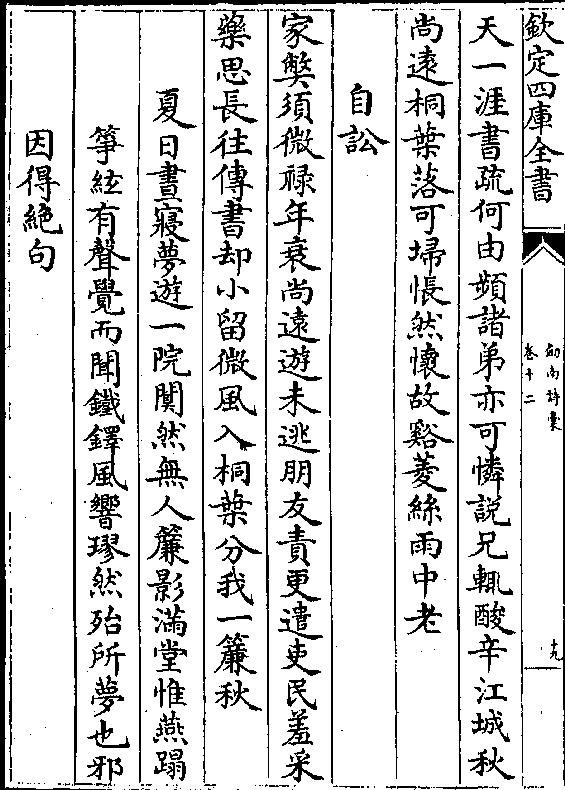 欽定四庫全書
劒南詩槀
卷十二
十九
天一涯書疏何由頻諸弟亦可憐説兄輒酸辛江城秋
尚遠桐葉落可埽悵然懷故谿菱絲雨中老
自訟
家弊須微禄年衰尚遠遊未逃朋友責更遣吏民羞采
藥思長往傳書却小留微風入桐葉分我一簾秋
夏日晝寢夢遊一院闃然無人簾影滿堂惟燕蹋
箏絃有聲覺而聞鐵鐸風響璆然殆所夢也邪
因得絶句